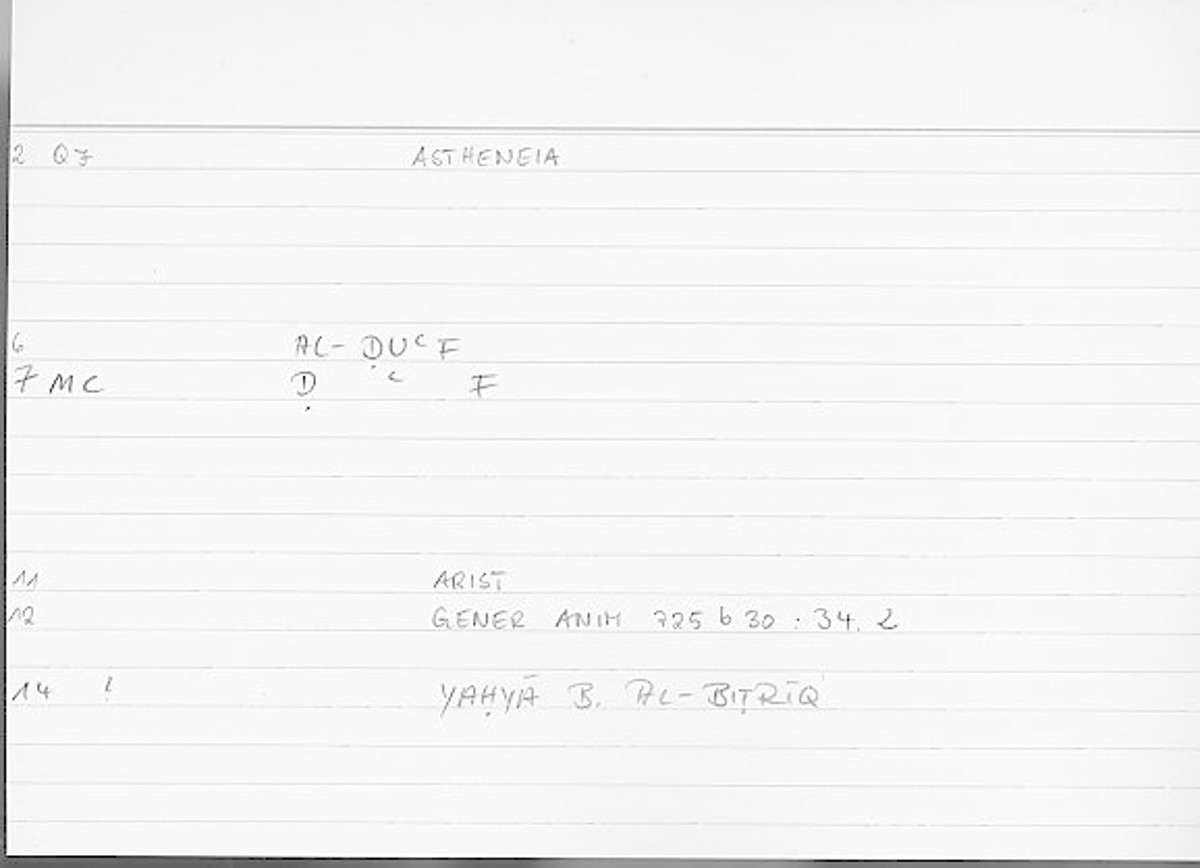 2 Q7 ASTHENEIA
6 AL-ḌUʿF
7 MC Ḍ ʿ F
11 ARIST
12 GENER ANIM 725 b 30 : 34. 2
14 YAḤYĀ B. AL-BIṬRĪQ